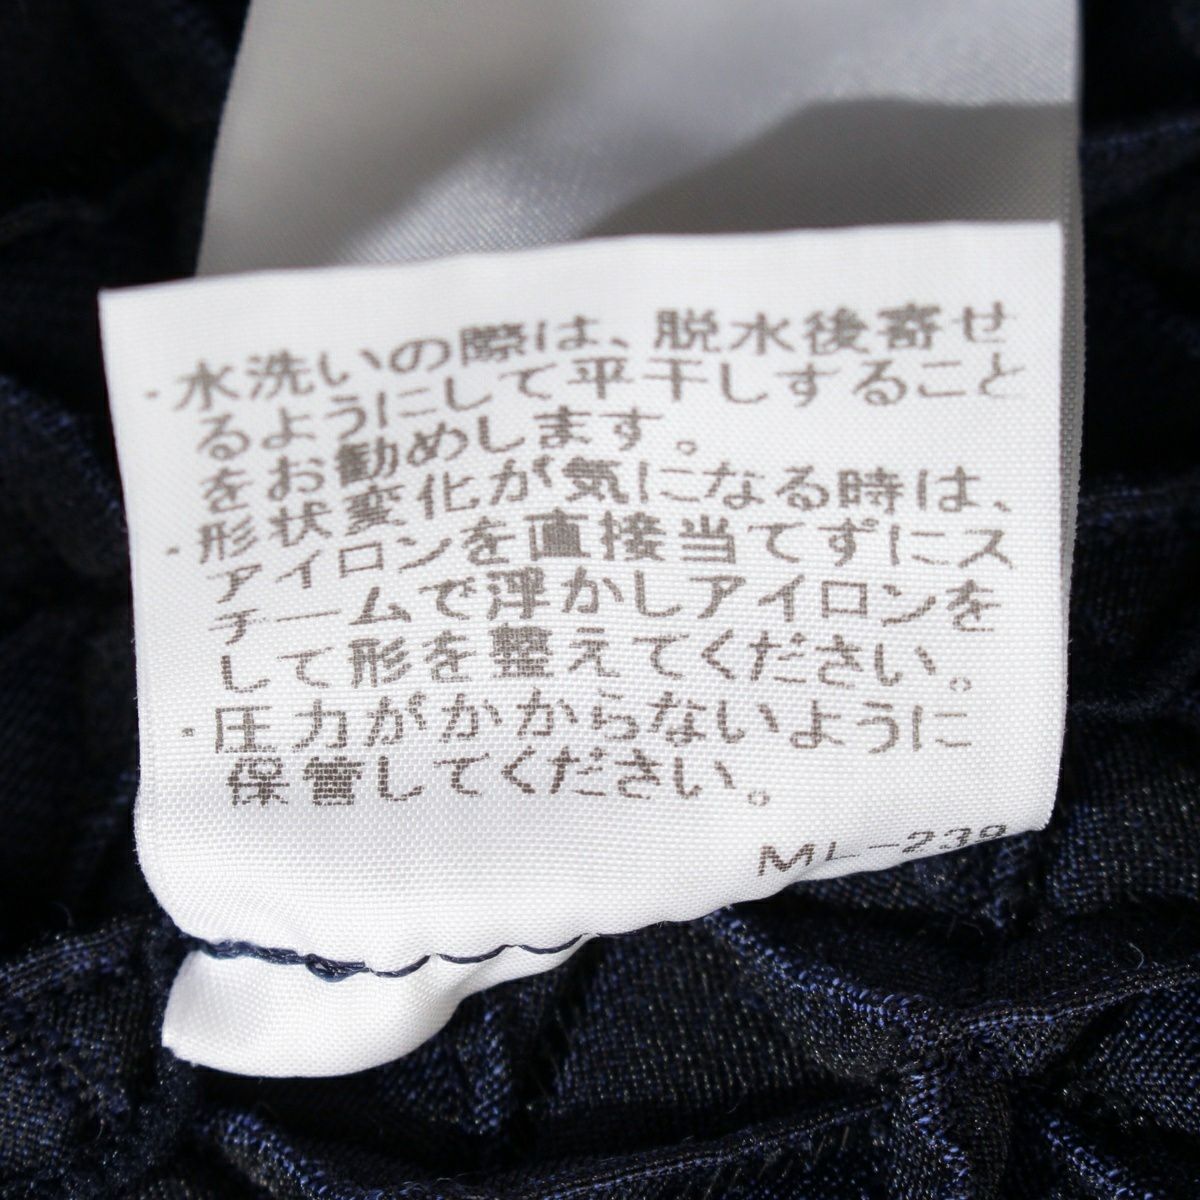 ・水洗いの際は、脱水後寄せ
るようにして平干しすること
をお勧めします。
・形状変化が気になる時は、
アイロンを直接当てずにス
チームで浮かしアイロンを
して形を整えてください。
・圧力がかからないように
保管してください。
ML-239